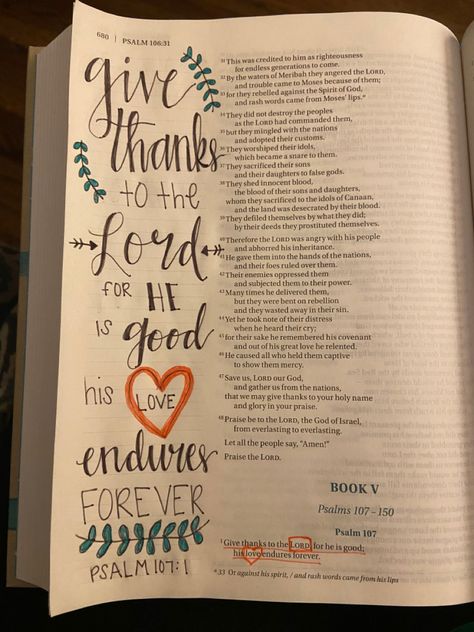 680 | PSALM 106:31
give
thanks
to the
Lord
for HE
is good
his LOVE
endures
FOREVER
PSALM 107:1
31 This was credited to him as righteousness
for endless generations to come.
32 By the waters of Meribah they angered the LORD,
and trouble came to Moses because of them;
33 for they rebelled against the Spirit of God,
and rash words came from Moses' lips.a
34 They did not destroy the peoples
as the LORD had commanded them,
35 but they mingled with the nations
and adopted their customs.
36 They worshiped their idols,
which became a snare to them.
37 They sacrificed their sons
and their daughters to false gods.
38 They shed innocent blood,
the blood of their sons and daughters,
whom they sacrificed to the idols of Canaan,
and the land was desecrated by their blood.
39 They defiled themselves by what they did;
by their deeds they prostituted themselves.
40 Therefore the LORD was angry with his people
and abhorred his inheritance.
41 He gave them into the hands of the nations,
and their foes ruled over them.
42 Their enemies oppressed them
and subjected them to their power.
43 Many times he delivered them,
but they were bent on rebellion
and they wasted away in their sin.
44 Yet he took note of their distress
when he heard their cry;
45 for their sake he remembered his covenant
and out of his great love he relented.
46 He caused all who held them captive
to show them mercy.
47 Save us, LORD our God,
and gather us from the nations,
that we may give thanks to your holy name
and glory in your praise.
48 Praise be to the LORD, the God of Israel,
from everlasting to everlasting.
Let all the people say, "Amen!"
Praise the LORD.
BOOK V
Psalms 107–150
Psalm 107
1 Give thanks to the LORD, for he is good;
his love endures forever.
a 33 Or against his spirit, / and rash words came from his lips